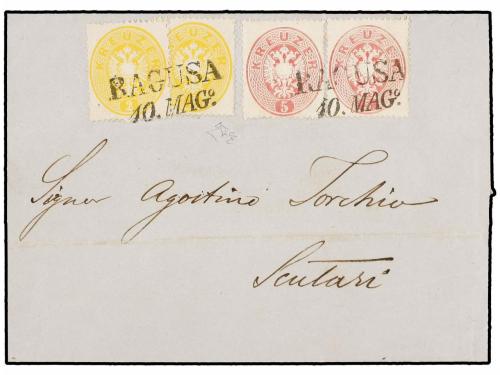 KREUZER KREUZER KREUZER KREUZER
5 5
RAGUSA RAGUSA
10. MAGº. 10. MAGº.
Signor Agostino Torchio
Scutari